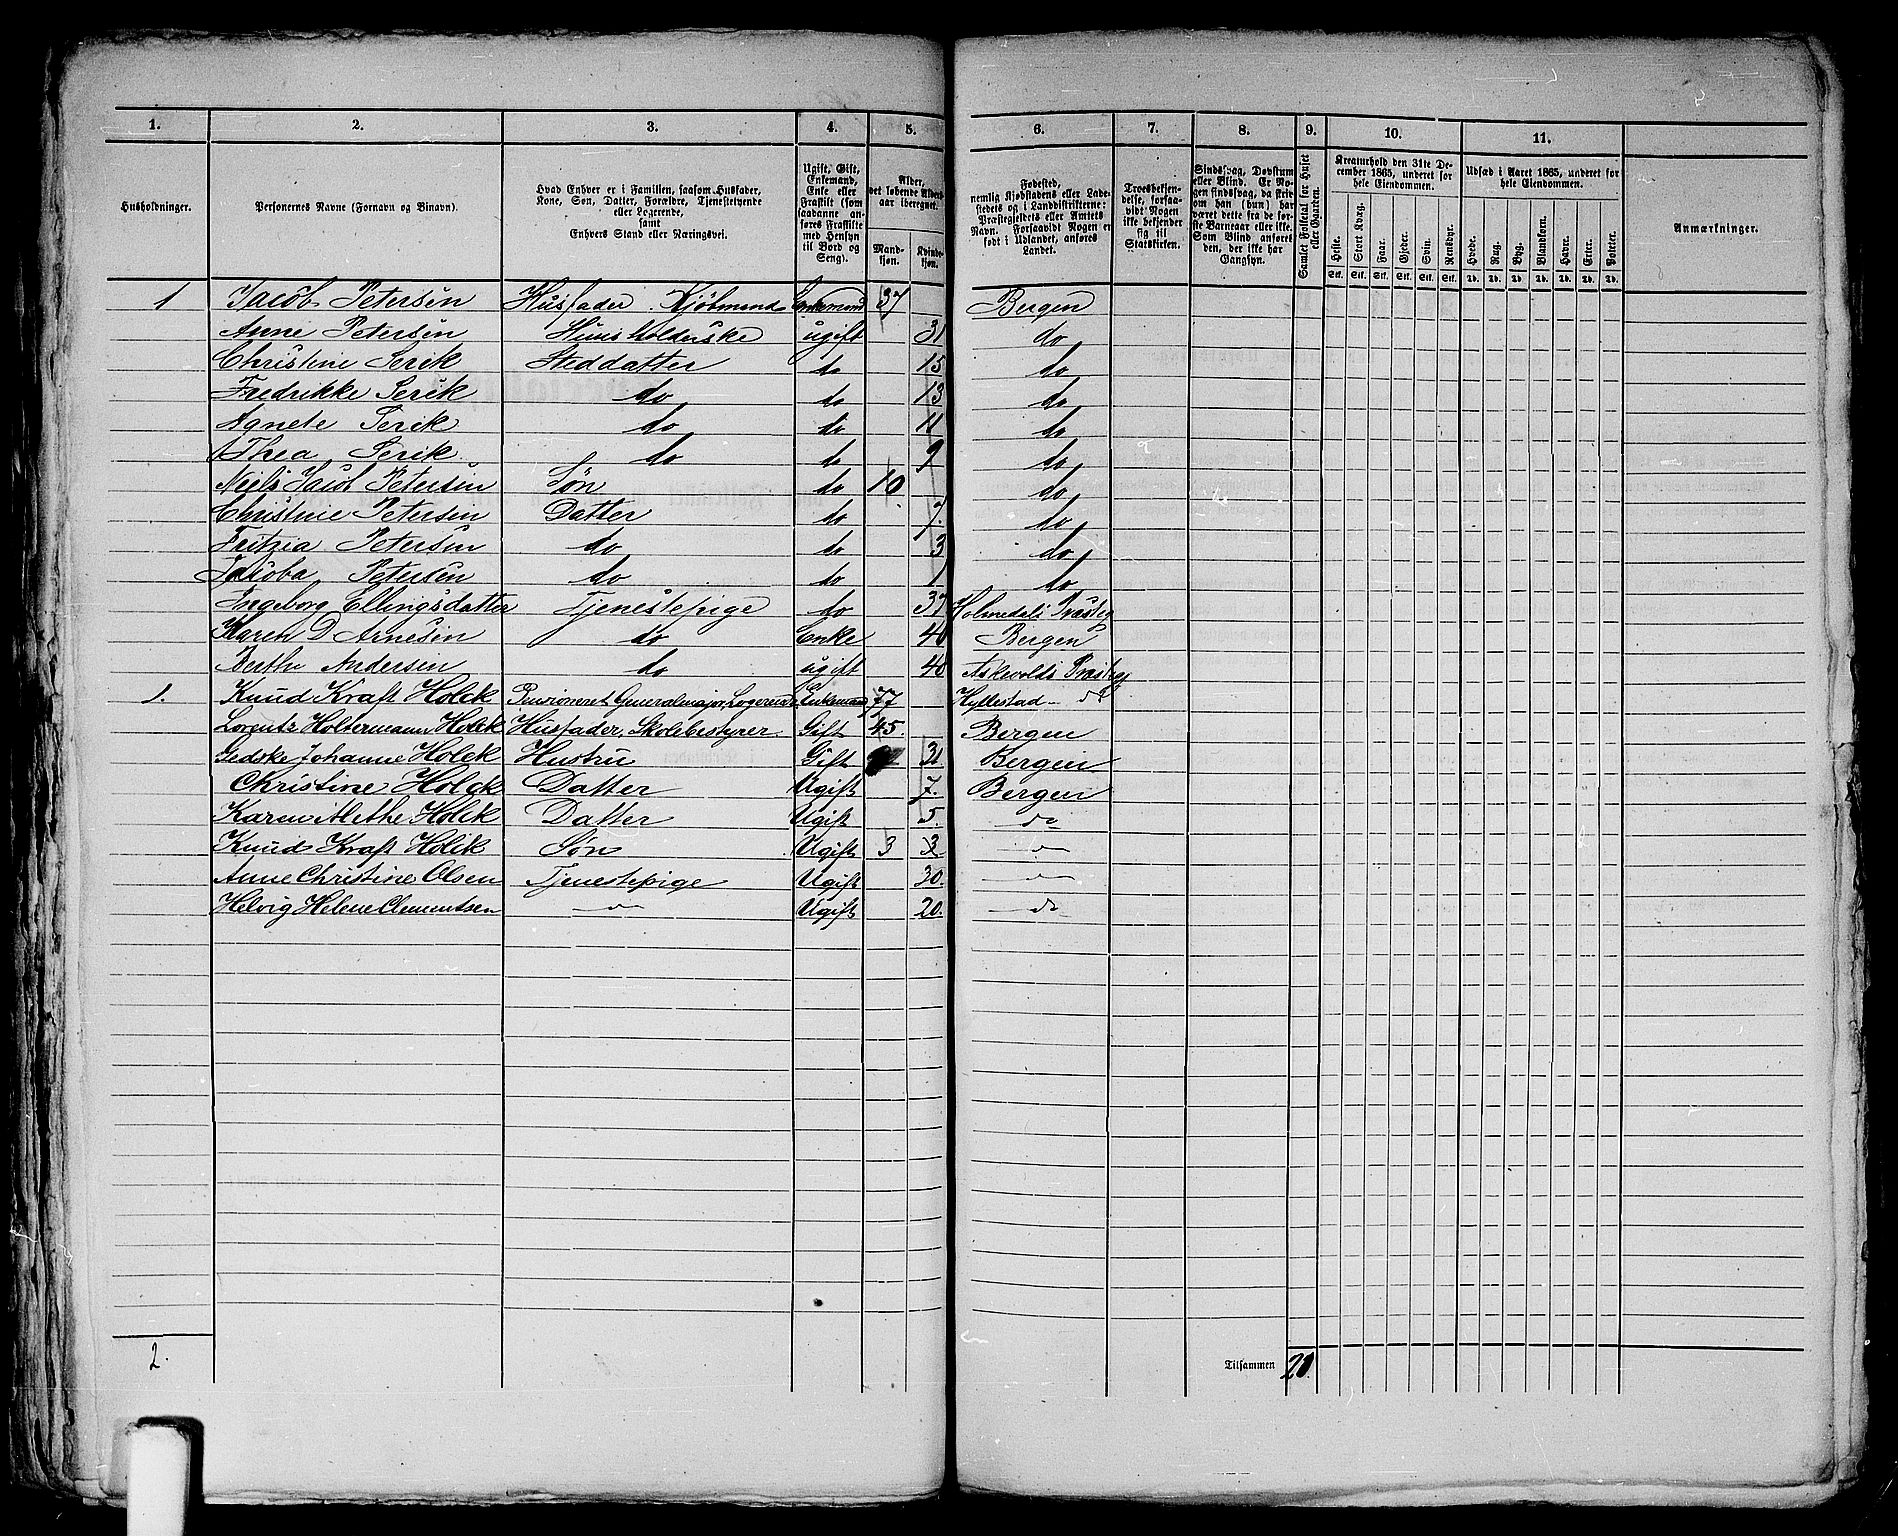 1. 2. 3. 4. 5. 6. 7. 8. 9. 10. 11.
Husholdninger.
Personernes Navne (Fornavn og Binavn).
Hvad Enhver er i Familien, saasom Husfader,
Kone, Søn, Datter, Forældre, Tjenestetyende
eller Logerende,
samt
Enhvers Stand eller Næringsvei.
Ugift, Gift,
Enkemand,
Enke eller
Fraskilt (som
saadanne an-
føres Fraskilte
med Hensyn
til Bord og
Seng).
Alder,
det løbende Alders-
aar iberegnet.
Mand-
kjøn.
Kvinde-
kjøn.
Fødested,
nemlig Kjøbstadens eller Lade-
stedets og i Landdistrikterne:
Præstegjeldets eller Amtets
Navn. Forsaavidt Nogen er
født i Udlandet, anføres
Landet.
Troesbekjen-
delse, forsaa-
vidt Nogen
ikke bekjender
sig til
Statskirken.
Sindssvag, Døvstum
eller Blind. Er No-
gen sindssvag, da hvid-
om han (hun) har
været dette fra de før-
ste Barneaar eller ikke.
Som Blind anføres
den, der ikke har
Gangsyn.
Samlet Folketal for Huset
eller Gaarden.
Kreaturhold den 31te De-
cember 1865, underet for
hele Eiendommen.
Heste. Stort Kvæg. Faar. Gjeder. Svin. Rensdyr.
Stk. Stk. Stk. Stk. Stk. Stk.
Udsæd i Aaret 1865, underet for
hele Eiendommen.
Hvede. Rug. Byg. Blandkorn. Havre. Erter. Poteter.
Td. Td. Td. Td. Td. Td. Td.
Anmærkninger.
1 Jacob Petersen Husfader. Kjøbmand Enkemand 37 Bergen
Anne Petersen Huusholderske ugift 31 do
Christine Serik Steddatter do 15 do
Fredrikke Serik do do 13 do
Agnete Serik do do 11 do
Thea Serik do do 9 do
Neils Jacob Petersen Søn do 10 do
Christine Petersen Datter do 7. do
Fritzia Petersen do do 3 do
Jacoba Petersen do do 1 do
Ingeborg Ellingsdatter Tjenestepige do 37 Holmedals Præstegj
Karen D Arnesen do Enke 40 Bergen
Berthe Andersen do ugift 40 Askevolds Præstegj
1. Knud Kraft Holck Pensioneret Generalmajor, Logerende Enkemand 77 Hyllestad do
Lorentz Holtermann Holck Husfader, Skolebestyrer Gift 45. Bergen
Gedske Johanne Holck Hustru Gift 31 Bergen
Christine Holck Datter Ugift 7. Bergen
Karen Alethe Holck Datter Ugift 5. do
Knud Kraft Holck Søn Ugift 3 3 do
Anne Christine Olsen Tjenestepige Ugift 30. do
Helvig Helene Clementsen do Ugift 20. do
2.
Tilsammen 21